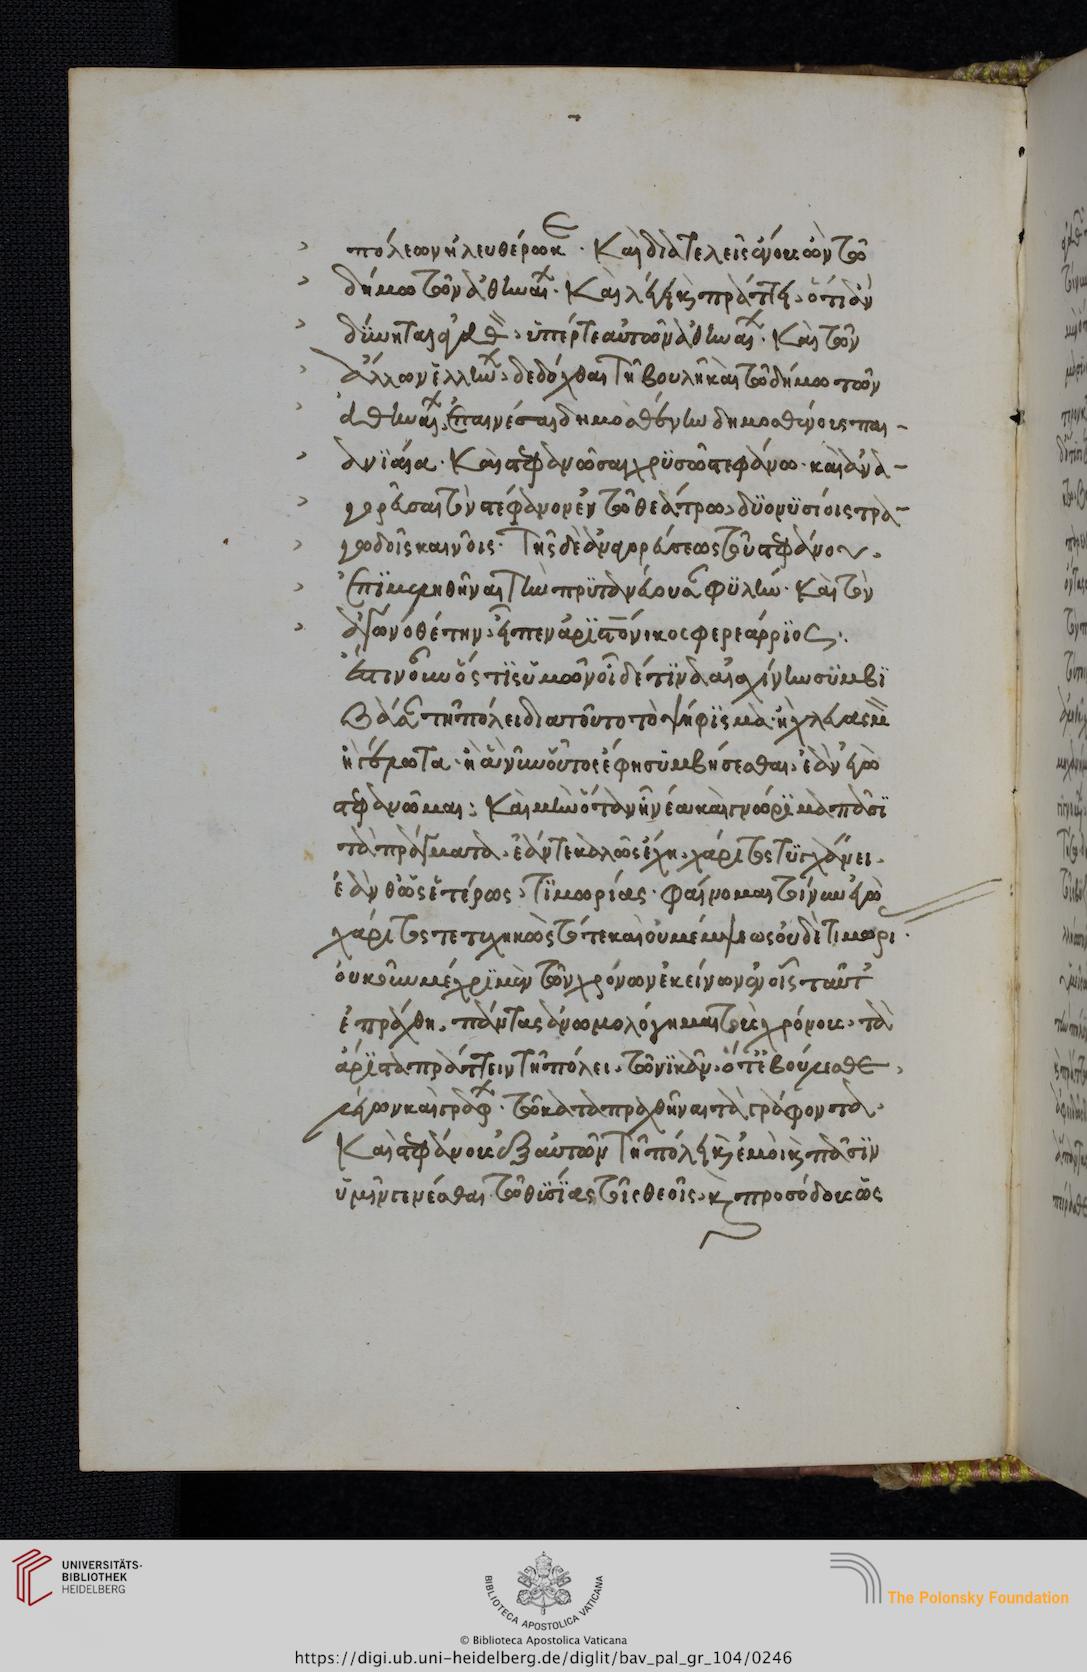 πόλεων ἠλευθέρωκε· καὶ διατελεῖ εὔνους ὢν τῶ
δήμω τῶν ἀθηναίων· καὶ λέγει καὶ πράττει ὅτι ἂν
δύνηται ἀγαθὸν, ὑπέρ τε αὐτῶν ἀθηναίων· καὶ τῶν
ἄλλων ἑλλήνων, δεδόχθαι τῆ βουλῆ καὶ τῶ δήμω τῶν
ἀθηναίων, ἐπαινέσαι δημοσθένην δημοσθένους παι-
ανιέα· καὶ στεφανῶσαι χρυσῶ στεφάνω· καὶ ἀνα-
γορεῦσαι τὸν στέφανον ἐν τῶ θεάτρω, διονυσίοις τρα-
γωδοῖς καινοῖς· τῆς δὲ ἀναγορεύσεως τοῦ στεφάνου,
ἐπιμεληθῆναι τὴν πρυτανεύουσαν φυλὴν· καὶ τὸν
ἀγωνοθέτην, εἶπεν ἀριστόνικος φρεάρριος:
ἔστιν οὖν ὅστις ὑμῶν οἶδέ τινα αἰσχύνην συμβ
βᾶσαν τῆ πόλει διὰ τοῦτο τὸ ψήφισμα· ἢ χλευασμὸν
ἢ γέλωτα· ἃ νῦν οὗτος ἔφη συμβήσεσθαι, ἐὰν ἐγὼ
στεφανῶμαι; καὶ μὴν ὅταν ἦ νέα καὶ γνώριμα πᾶσι
τὰ πράγματα, ἐάν τε καλῶς ἔχη, χάριτος τυγχάνει,
ἐὰν θ' ὡς ἑτέρως, τιμωρίας· φαίνομαι τοίνυν ἐγὼ
χάριτος τετυχηκὼς τότε καὶ οὐ μέμψεως οὐδὲ τιμωρί
οὐκοῦν μέχρι μὲν τῶν χρόνων ἐκείνων ἐν οἷς ταῦτ'
ἐπράχθη, πάντας ἀνωμολόγημαι τοὺς χρόνους, τὰ
ἄριστα πράττειν τῆ πόλει, τῶ νικᾶν, ὅτ' ἐβούλεσθε,
λέγων καὶ γράφων· τῶ καταπραχθῆναι τὰ γραφέντα,
καὶ στεφάνους ἐξ αὐτῶν τῆ πόλει καὶ ἐμοὶ καὶ πᾶσιν
ὑμῖν γενέσθαι, τῶ θυσίας τοῖς θεοῖς, καὶ προσόδους ὡς
UNIVERSITÄTS-
BIBLIOTHEK
HEIDELBERG
BIBLIOTECA APOSTOLICA VATICANA
The Polonsky Foundation
© Biblioteca Apostolica Vaticana
https://digi.ub.uni-heidelberg.de/diglit/bav_pal_gr_104/0246